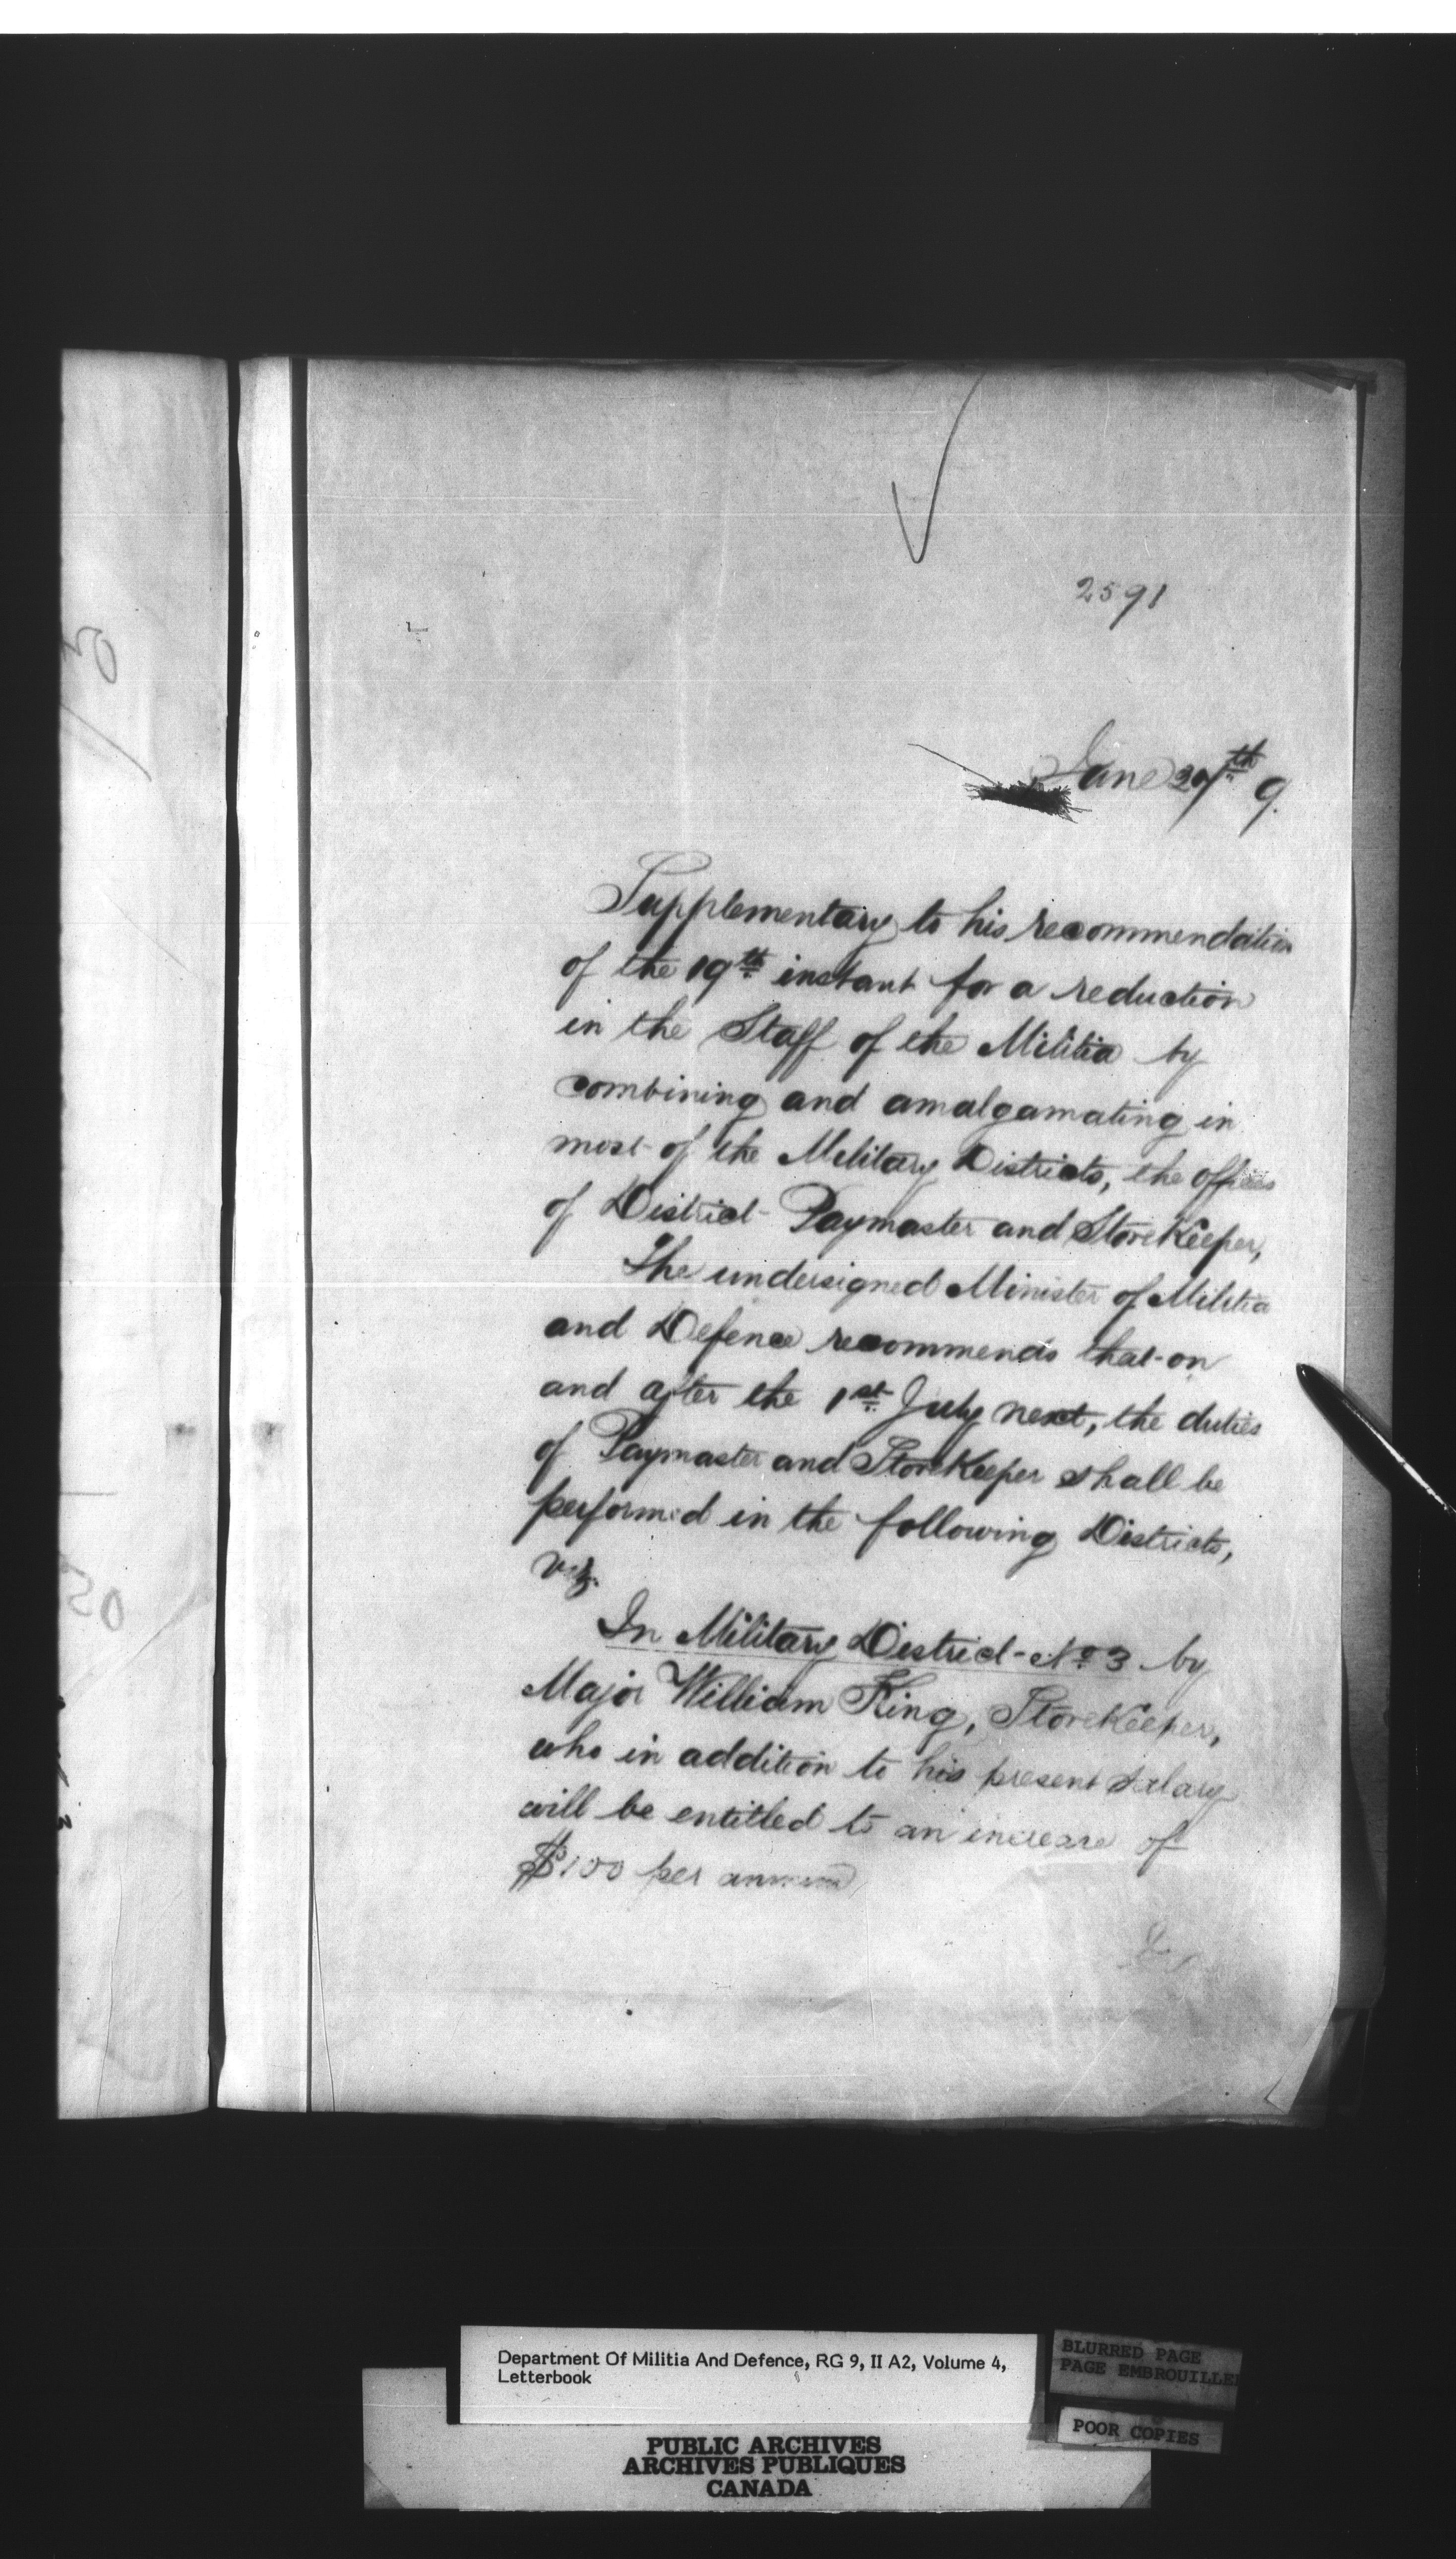 2591
June 27th 9.
Supplementary to his recommendation
of the 19th instant for a reduction
in the Staff of the Militia by
combining and amalgamating in
most of the Military Districts, the offices
of District Paymaster and StoreKeeper,
The undersigned Minister of Militia
and Defence recommends that on
and after the 1st July next, the duties
of Paymaster and StoreKeeper shall be
performed in the following Districts,
viz.
In Military District No 3 by
Major William King, StoreKeeper,
who in addition to his present Salary
will be entitled to an increase of
$100 per annum
Department Of Militia And Defence, RG 9, II A2, Volume 4,
Letterbook
BLURRED PAGE
PAGE EMBROUILLEE
POOR COPIES
PUBLIC ARCHIVES
ARCHIVES PUBLIQUES
CANADA